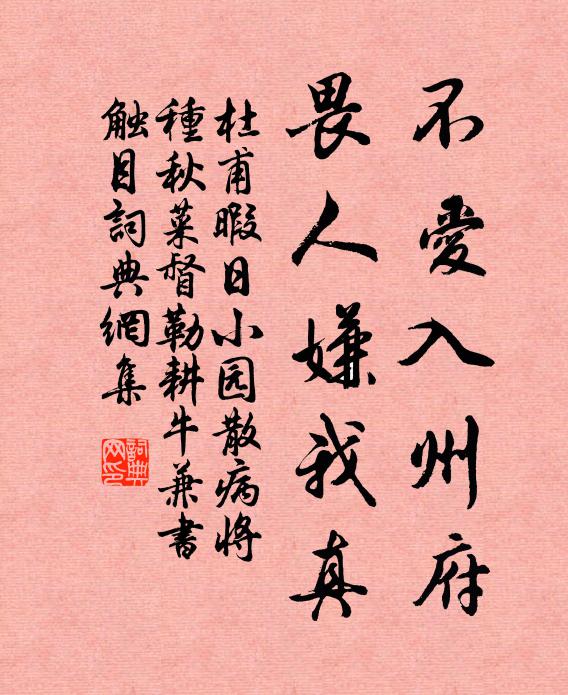 不愛入州府
畏人嫌我真
杜甫暇日小园散病将
種秋菜督勒耕牛兼書
触目詞典網集
詞典
网印